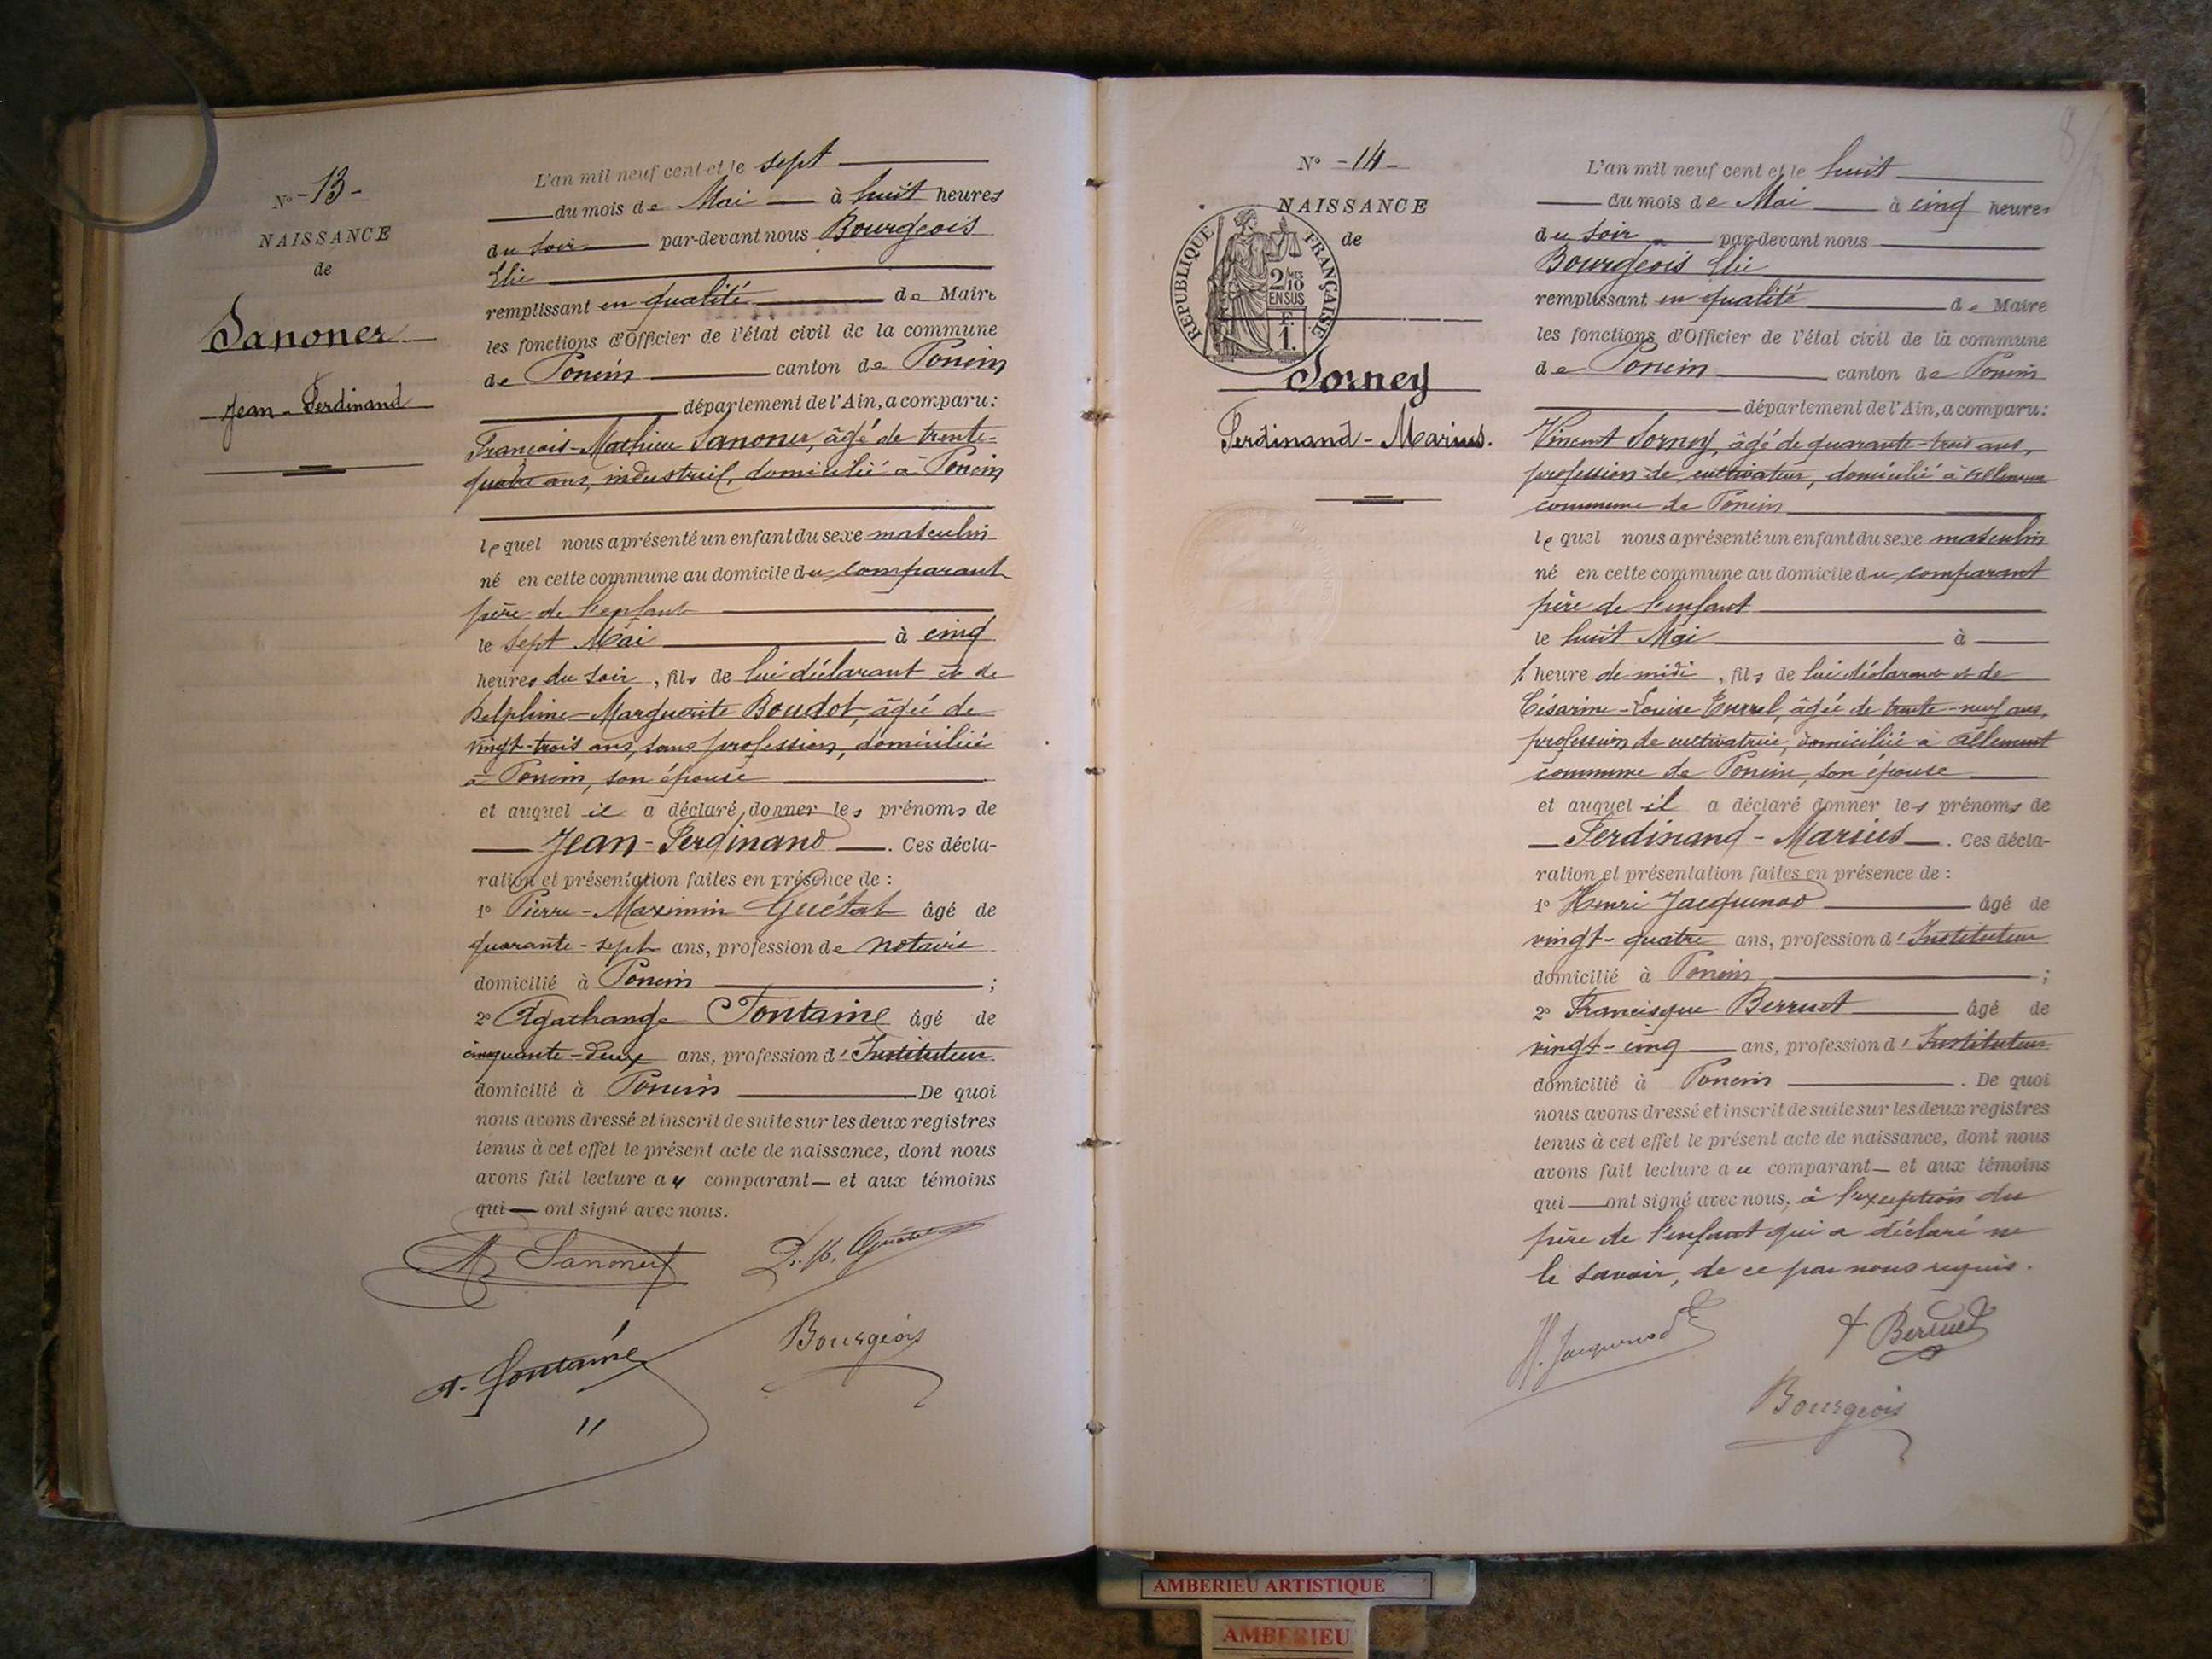 N° -13-
NAISSANCE
de
Sanoner
Jean-Ferdinand
L'an mil neuf cent et le sept
du mois de Mai à huit heures
du soir par-devant nous Bourgeois
Elie
remplissant en qualité de Maire
les fonctions d'Officier de l'état civil de la commune
de Poncin canton de Poncin
département de l'Ain, a comparu:
François-Mathieu Sanoner, âgé de trente-
quatre ans, industriel, domicilié à Poncin
lequel nous a présenté un enfant du sexe masculin
né en cette commune au domicile du comparant
père de l'enfant
le sept Mai à cinq
heures du soir, fils de lui déclarant et de
Delphine-Marguerite Boudot, âgée de
vingt-trois ans, sans profession, domiciliée
à Poncin, son épouse
et auquel il a déclaré donner les prénoms de
Jean-Ferdinand. Ces décla-
ration et présentation faites en présence de :
1° Pierre-Maximin Guétat âgé de
quarante-sept ans, profession de notaire
domicilié à Poncin ;
2° Agathange Fontaine âgé de
cinquante-deux ans, profession d'Instituteur
domicilié à Poncin. De quoi
nous avons dressé et inscrit de suite sur les deux registres
tenus à cet effet le présent acte de naissance, dont nous
avons fait lecture au comparant et aux témoins
qui ont signé avec nous.
M Sanoner
Guétat
A. Fontaine
Bourgeois
N° -14-
NAISSANCE
de
RÉPUBLIQUE FRANÇAISE
2/10 MES
EN SUS
F.
1.
Sorney
Ferdinand-Marius.
L'an mil neuf cent et le huit
du mois de Mai à cinq heures
du soir par-devant nous
Bourgeois Elie
remplissant en qualité de Maire
les fonctions d'Officier de l'état civil de la commune
de Poncin canton de Poncin
département de l'Ain, a comparu:
Vincent Sorney, âgé de quarante-trois ans,
profession de cultivateur, domicilié à Allement
commune de Poncin
lequel nous a présenté un enfant du sexe masculin
né en cette commune au domicile du comparant
père de l'enfant
le huit Mai à
1 heure de midi, fils de lui déclarant et de
Césarine-Louise, âgée de trente-neuf ans,
profession de cultivatrice, domiciliée à Allement
commune de Poncin, son épouse
et auquel il a déclaré donner les prénoms de
Ferdinand-Marius. Ces décla-
ration et présentation faites en présence de :
1° Henri Jacquenod âgé de
vingt-quatre ans, profession d'Instituteur
domicilié à Poncin ;
2° Francisque Berruet âgé de
vingt-cinq ans, profession d'Instituteur
domicilié à Poncin. De quoi
nous avons dressé et inscrit de suite sur les deux registres
tenus à cet effet le présent acte de naissance, dont nous
avons fait lecture au comparant et aux témoins
qui ont signé avec nous, à l'exception du
père de l'enfant qui a déclaré ne
le savoir, de ce par nous requis.
H. Jacquenod
F Berruet
Bourgeois
AMBERIEU ARTISTIQUE
AMBERIEU